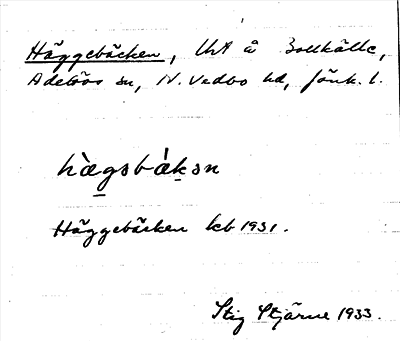 Häggebäcken, Uht å Bollkälle,
Adelövs sn, N. Vedbo hd, Jönk. l.
hägəbäkən
Häggebäcken kb 1931.
Stig Stjärne 1933.